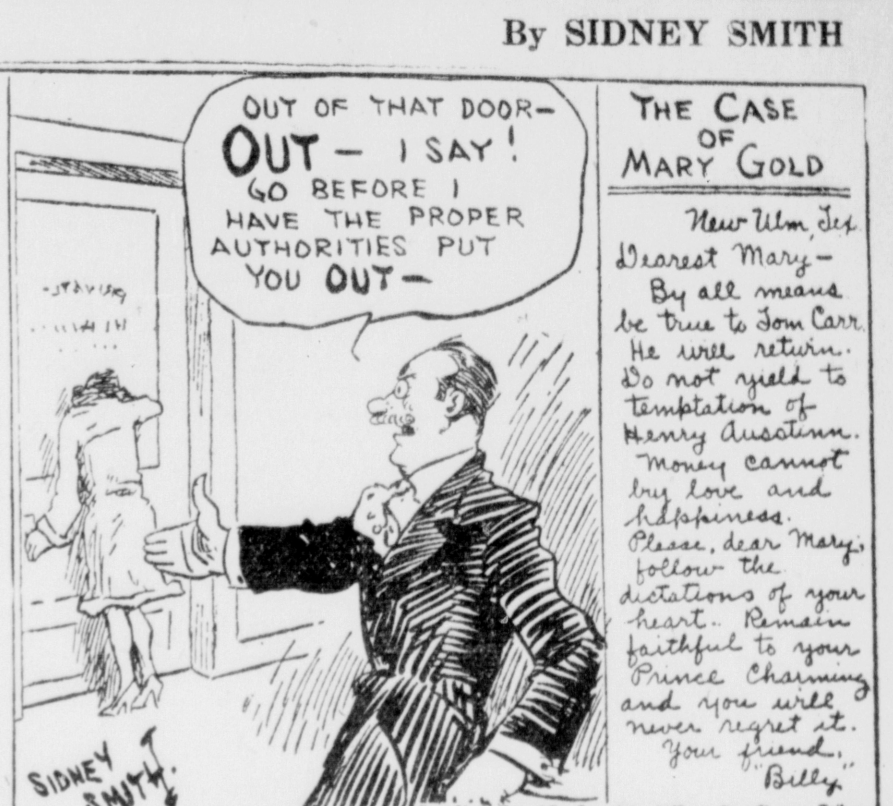 By SIDNEY SMITH
OUT OF THAT DOOR—
OUT — I SAY!
GO BEFORE I
HAVE THE PROPER
AUTHORITIES PUT
YOU OUT —
SIDNEY
SMITH.
THE CASE
OF
MARY GOLD
New Ulm, Tex.
Dearest Mary—
By all means
be true to Tom Carr.
He will return.
Do not yield to
temptation of
Henry Ausstinn.
Money cannot
buy love and
happiness.
Please, dear Mary,
follow the
dictations of your
heart. Remain
faithful to your
Prince Charming
and you will
never regret it.
Your friend,
"Billy"